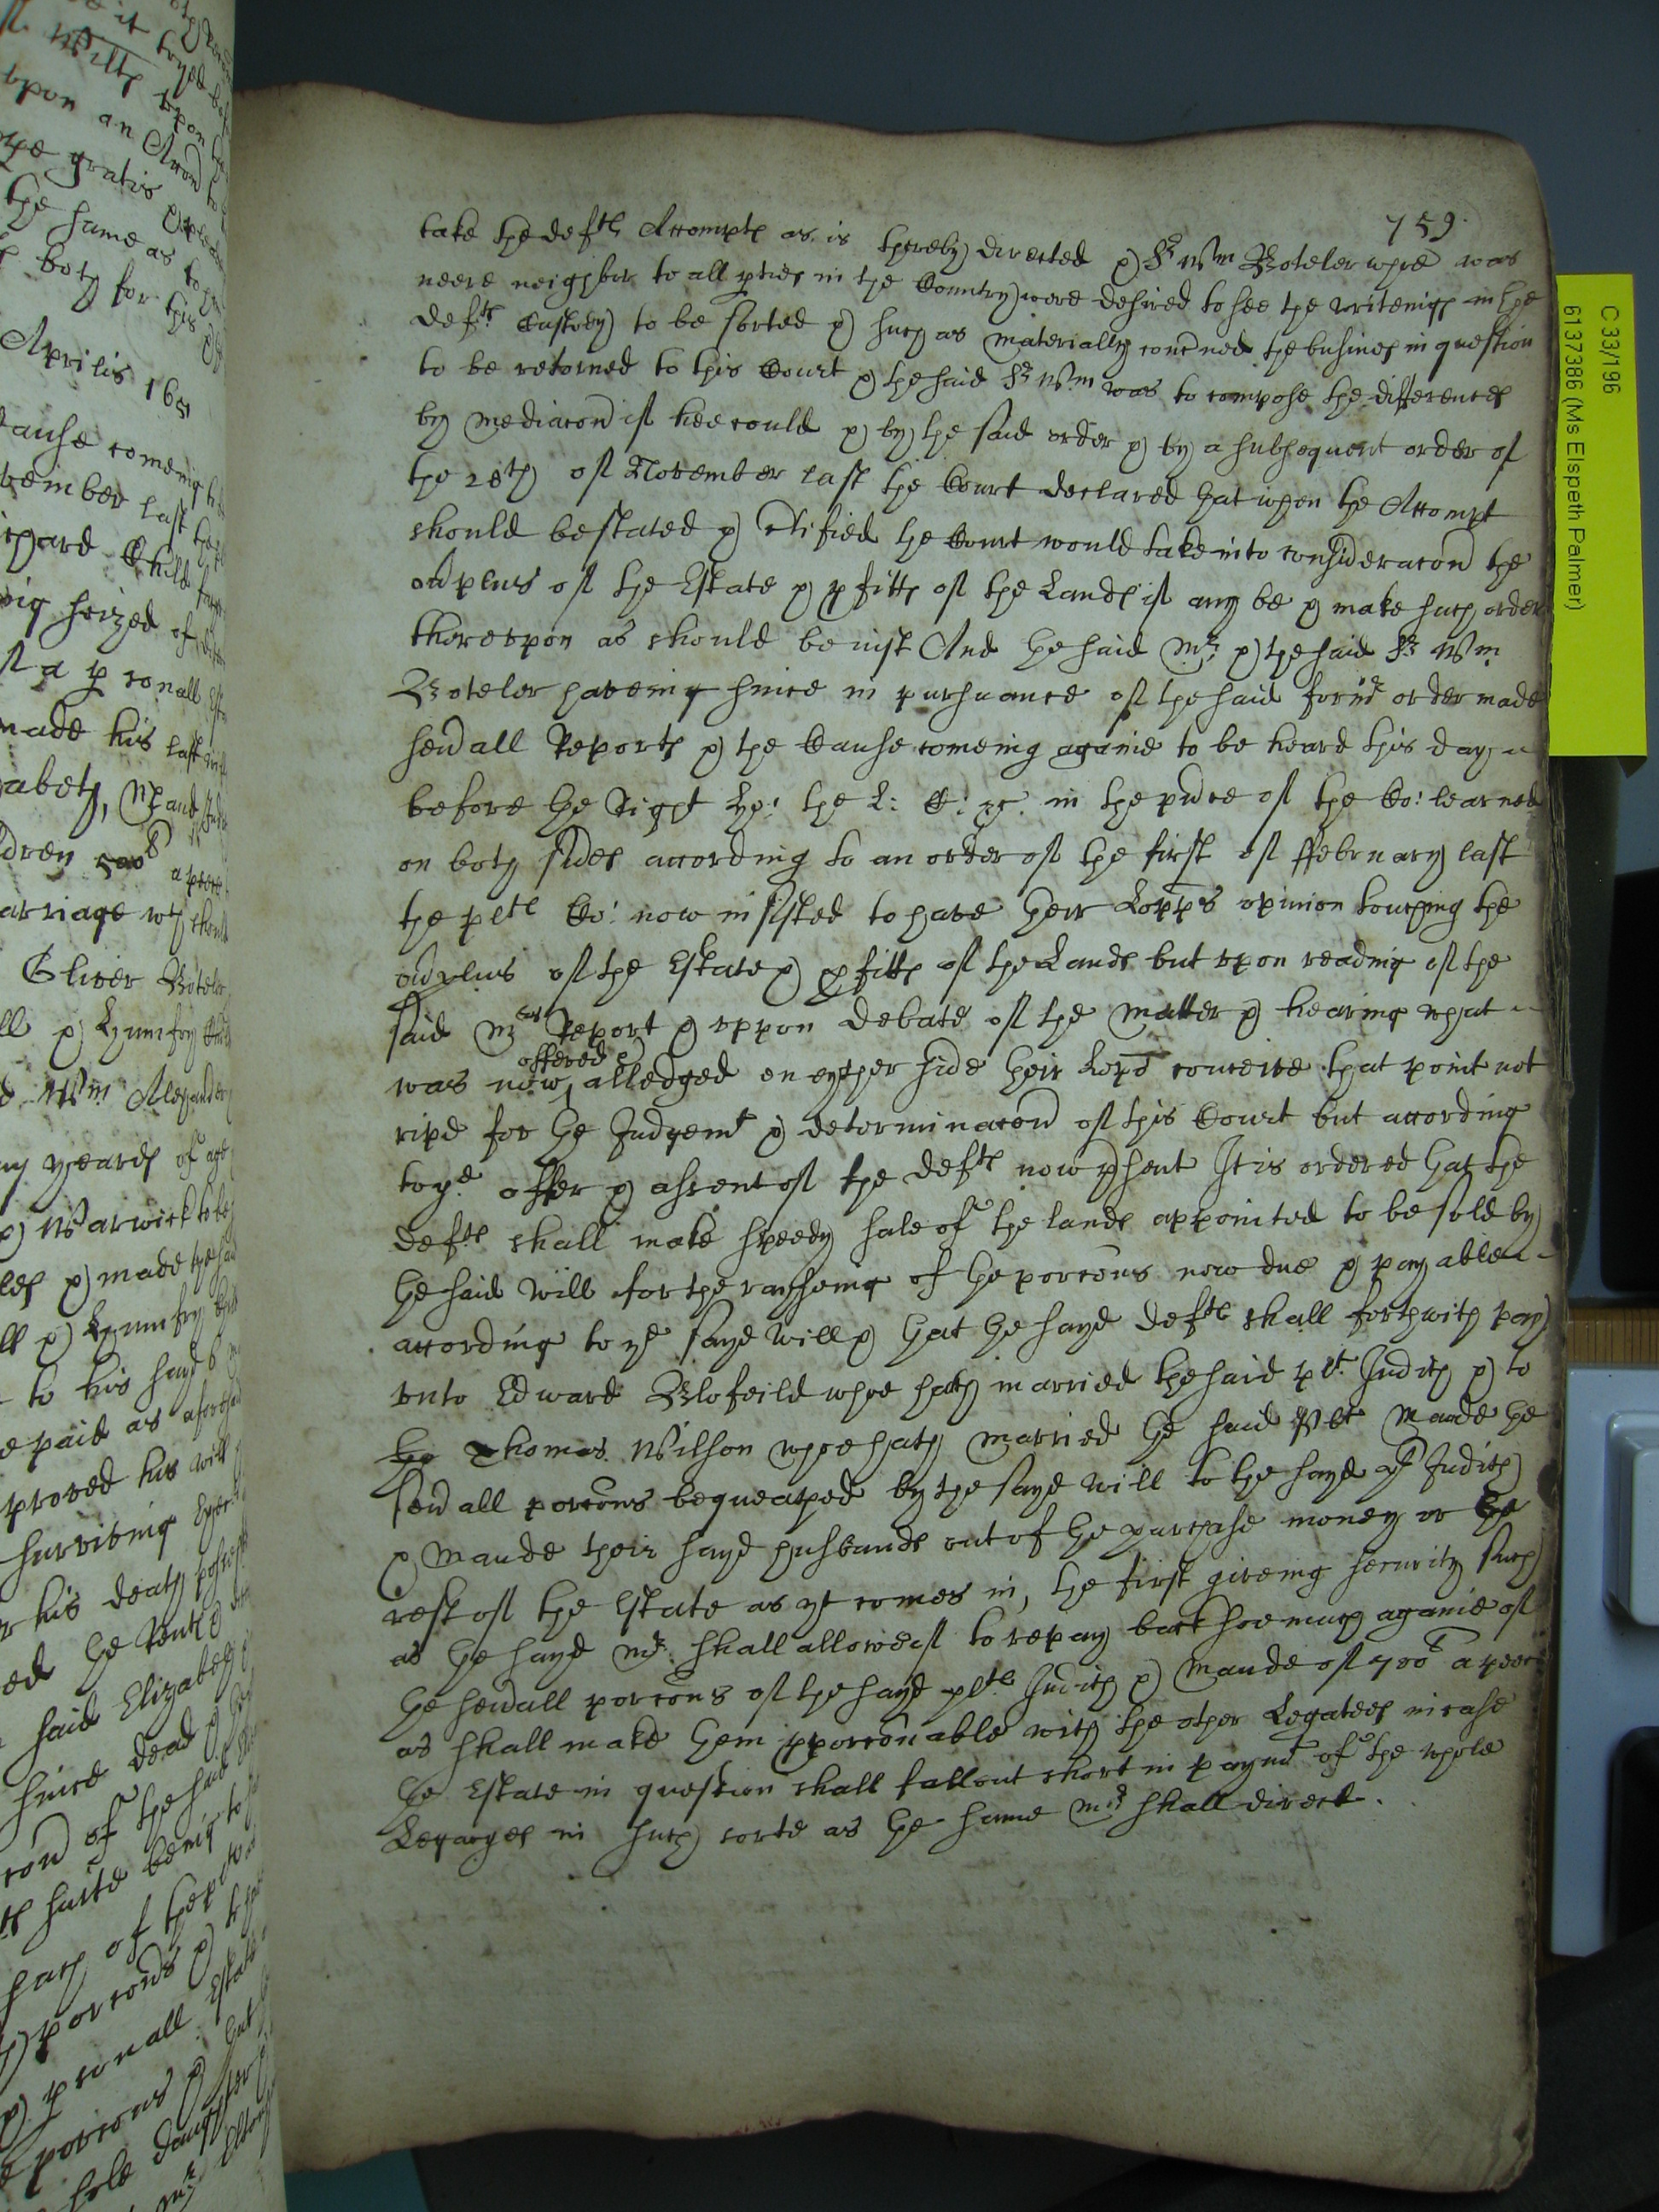 759.
take the deftℯ Accomptℯ as is thereby directed & Sr Wm Boteler whoe was
neere neighbor to all pties in the Country were desired to see the writeingℯ in the
deftℯ Custody to be sorted & such as materially concned the busines in question
to be retorned to this Court & the said Sr Wm was to compose the differences
by mediacon if hee could & by the said order & by a subsequent order of
the 28th of November last the Court declared that when the Accompt
should be stated & ctified the Court would take into consideracon the
ovplus of the Estate & pfittℯ of the Landℯ if any be & make such order
thereupon as should be iust And the said Mr & the said Sr Wm
Boteler haveing since in pursuance of the said formd order made
sevall Reportℯ & the Cause comeing againe to be heard this day
before the Right Ho: the L: C: &c. in the pnce of the Co: learned
on both sides according to an order of the first of ffebruary last
the pltℯ Co: now insisted to have their Lopps opinion touching the
ovplus of the Estate & pfittℯ of the Landℯ but upon reading of the
said Mrs last Report & uppon debate of the matter & hearing what
was now offered & alledged on eyther side their Lopps conceive that point not
ripe for the Judgemt & determinacon of this Court but according
to ye offer & assent of the deftℯ now psent It is ordered that the
deftℯ shall make speedy sale of the landℯ appointed to be sold by
the said will for the rayseing of the porcons now due & payable
according to ye sayd will & that the sayd deftℯ shall forthwith pay
unto Edward Blofeild whoe hath married the said plt Judith & to
the Thomas Wilson whoe hath married the said Plt Maude the
sevall porcons bequeathed by the sayd will to the sayd Judith
& Maude their sayd husbandℯ out of the purchase money or the
rest of the Estate as yt comes in, the first giveing security such
as the sayd Mr shall allowe of to repay back soe much againe of
the sevall porcons of the sayd pltℯ Judith & Maude of 700l a peece
as shall make them pporconable with the other Legatees in case
the Estate in question shall fall out short in paymt of the whole
Legacyes in such sorte as the same Mr shall direct.
C 33/196
6137386 (Ms Elspeth Palmer)
Aprilis 1651
upon an
the same as to
both for this
cause comeing
last
Child
seized of
made his last
Oliver Boteler
Wm Alexander
yeares of age
& Warwick to be
& made the
to his sayd
paid as aforesayd
proved his will
surviving
his death
said Elizabeth
since dead
of the said
suite being to
& psonall Estate
daughter